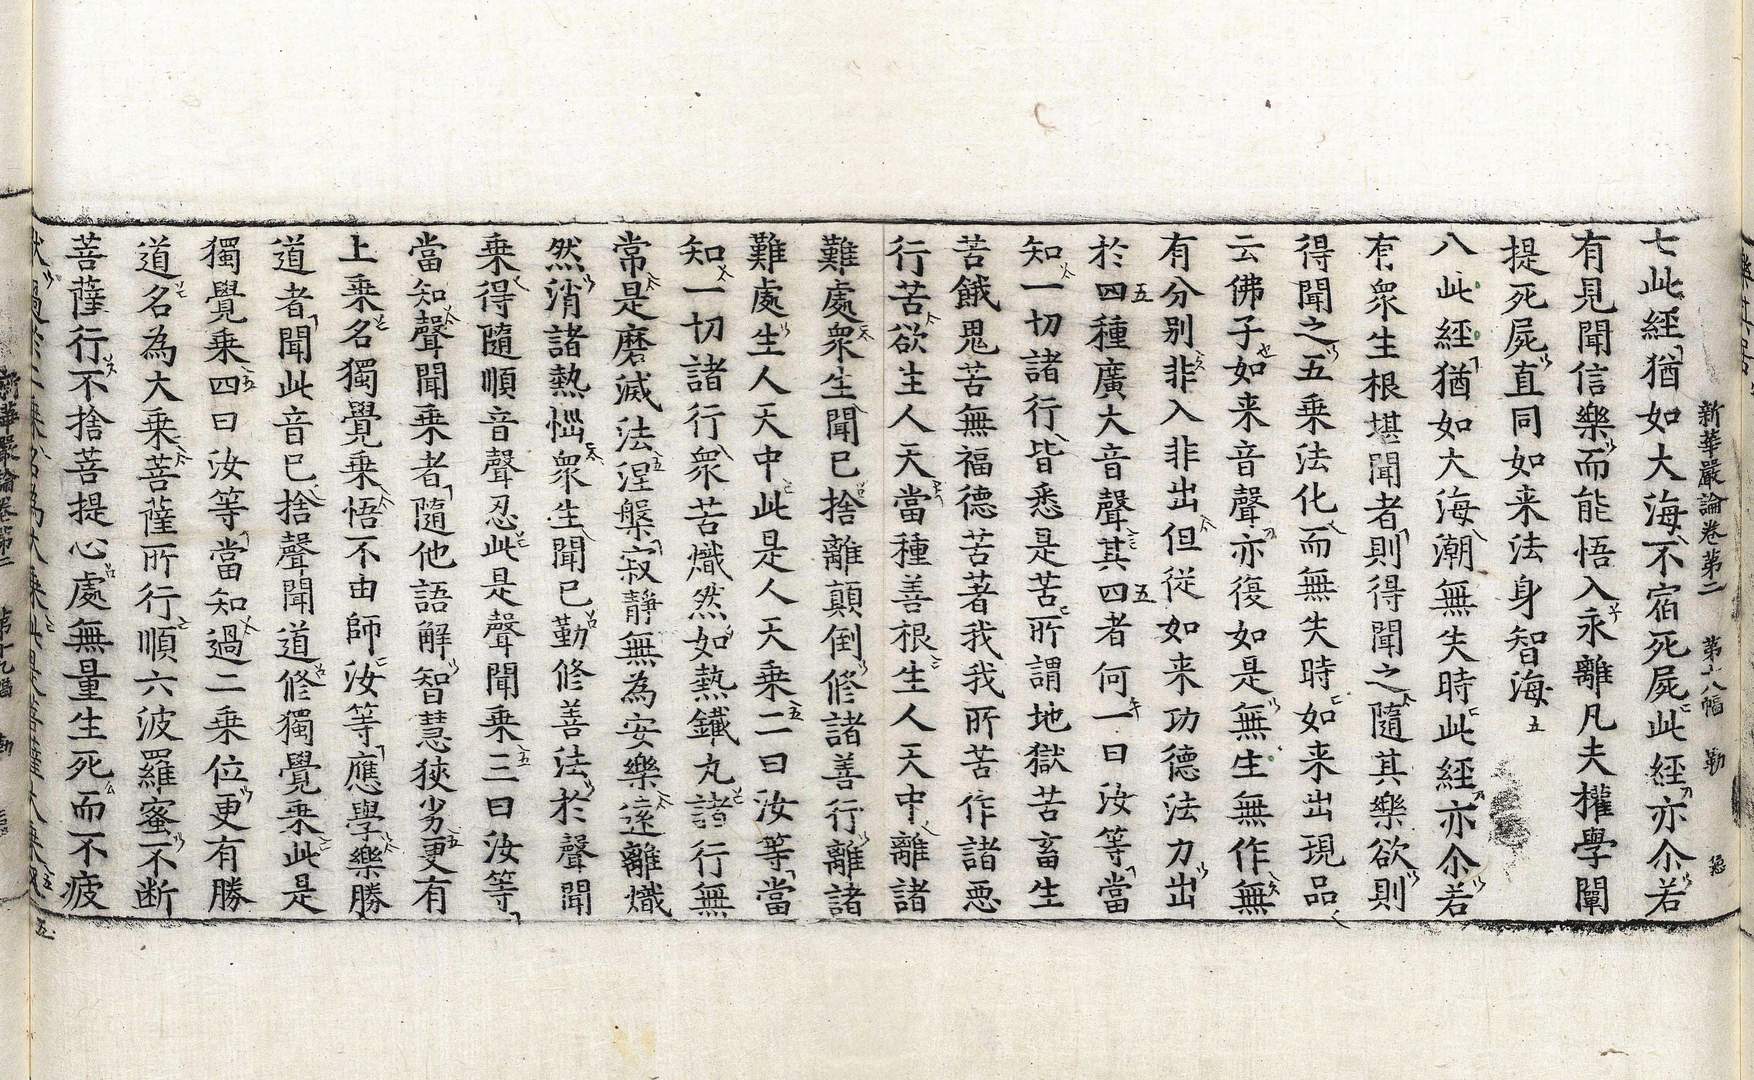 新華嚴論卷第二 第十八幅 勒
七此經猶如大海不宿死屍此經亦尒若
有見聞信樂而能悟入永離凡夫權學闡
提死屍直同如来法身智海
八此經猶如大海潮無失時此經亦尒若
有衆生根堪聞者則得聞之隨其樂欲則
得聞之五乘法化而無失時如来出現品
云佛子如来音聲亦復如是無生無作無
有分别非入非出但從如来功德法力出
於四種廣大音聲其四者何一曰汝等當
知一切諸行皆悉是苦所謂地獄苦畜生
苦餓鬼苦無福德苦著我我所苦作諸惡
行苦欲生人天當種善根生人天中離諸
難處衆生聞已捨離顛倒修諸善行離諸
難處生人天中此是人天乘二曰汝等當
知一切諸行衆苦熾然如熱鐵丸諸行無
常是磨滅法涅槃寂靜無為安樂遠離熾
然消諸熱惱衆生聞已勤修善法於聲聞
乘得隨順音聲忍此是聲聞乘三曰汝等
當知聲聞乘者隨他語解智慧狹劣更有
上乘名獨覺乘悟不由師汝等應學樂勝
道者聞此音已捨聲聞道修獨覺乘此是
獨覺乘四曰汝等當知過二乘位更有勝
道名為大乘菩薩所行順六波羅蜜不断
菩薩行不捨菩提心處無量生死而不疲